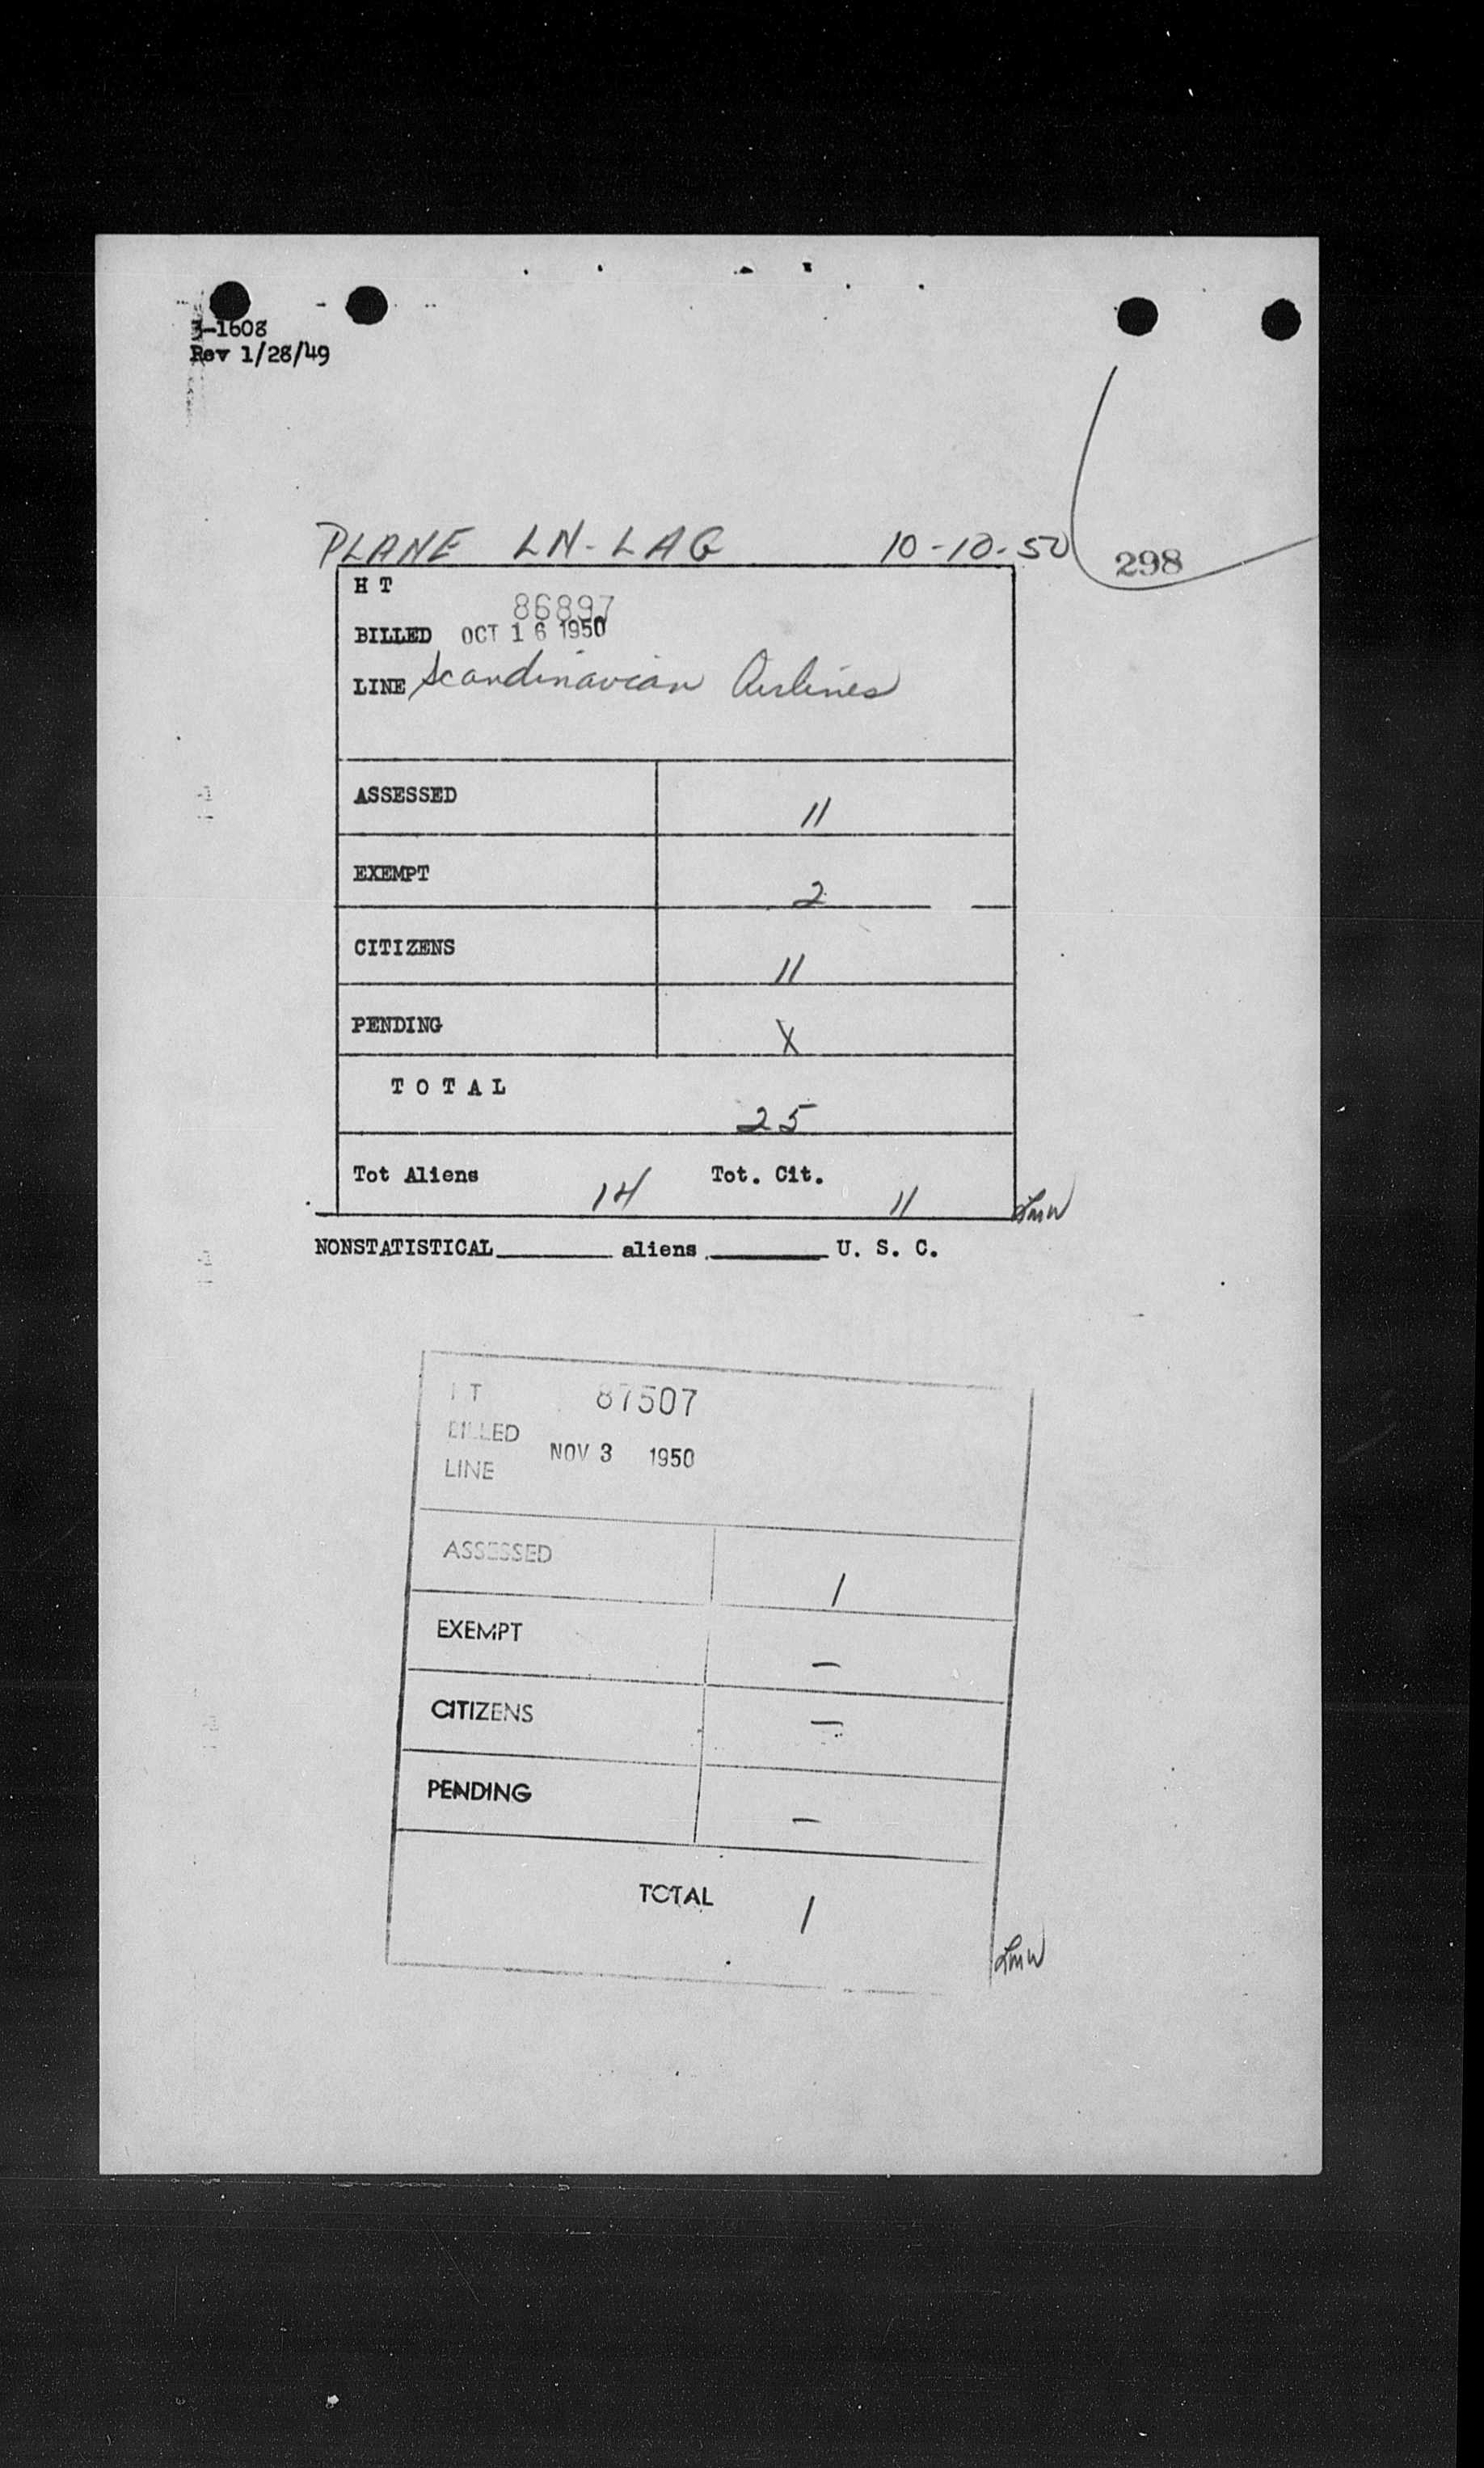 3-1608
Rev 1/28/49
PLANE LN-LAG 10-10-50
298
H T
86897
BILLED OCT 16 1950
LINE Scandinavian Airlines
ASSESSED 11
EXEMPT 2
CITIZENS 11
PENDING X
TOTAL
25
Tot Aliens 14 Tot. Cit. 11
LMW
NONSTATISTICAL aliens U. S. C.
T 87507
BILLED NOV 3 1950
LINE
ASSESSED 1
EXEMPT –
CITIZENS –
PENDING –
TOTAL 1
LMW